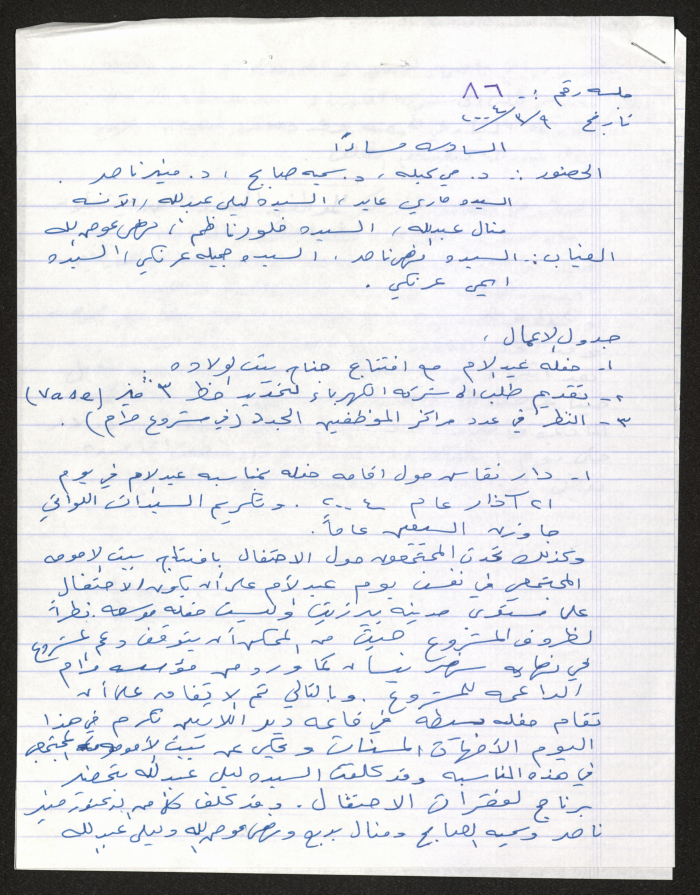 جلسه رقم :- ٨٦
تاريخ ٢٠٠٤/٣/٩
السادسه مساءً
الحضور :- د. مي كيله ، د. سميه صايج ، د. منير ناصر .
السيده ماري عابد ، السيده ليلى عبدالله ، الآنسه
منال عبدالله ، السيده فلورا ناظم ، نهى عوض الله
الغياب :- السيده نهى ناصر ، السيده جميله عرنكي ، السيده
ايمي عرنكي .
جدول الاعمال ،
١- حفله عيد الام مع افتتاح جناح بيت لولاده
٢- تقديم طلب الى شركه الكهرباء لتمديد خط ٣ فيز (Vase)
٣- النظر في عدد مراكز الموظفين الجدد (في مشروع مرام) .
١- دار نقاش حول اقامه حفله بمناسبه عيد لام في يوم
٢١ آذار عام ٢٠٠٤ . وتكريم السيدات اللواتي
جاوزن السبعين عاماً .
وكذلك تحدث المجتمعون حول الاحتفال بافتتاح بيت لامومه
المجتمعي في نفس يوم عيد لأم على أن يكون الاحتفال
على مستوى مدينه بيرزيت وليست حفله موسعه نظراً
لظروف المشروع حيث من الممكن أن يتوقف دعم لمشروع
في نهايه شهر نيسان كما ورد من مؤسسه مرام
الداعمه للمشروع . وبالتالي تم لاتفاق على أن
تقام حفله بسيطه في قاعه دير اللاتين نكرم في هذا
اليوم الأمهات المسنات ونحكي عن بيت لأمومه المجتمعي
في هذه المناسبه وقد كلفت السيده ليلى عبدالله بتحضير
برنامج لفقرات الاحتفال . وقد كلف كلا من الدكتور منير
ناصر وسميه الصايج ومنال بديع ونهى عوض الله وليلى عبدالله